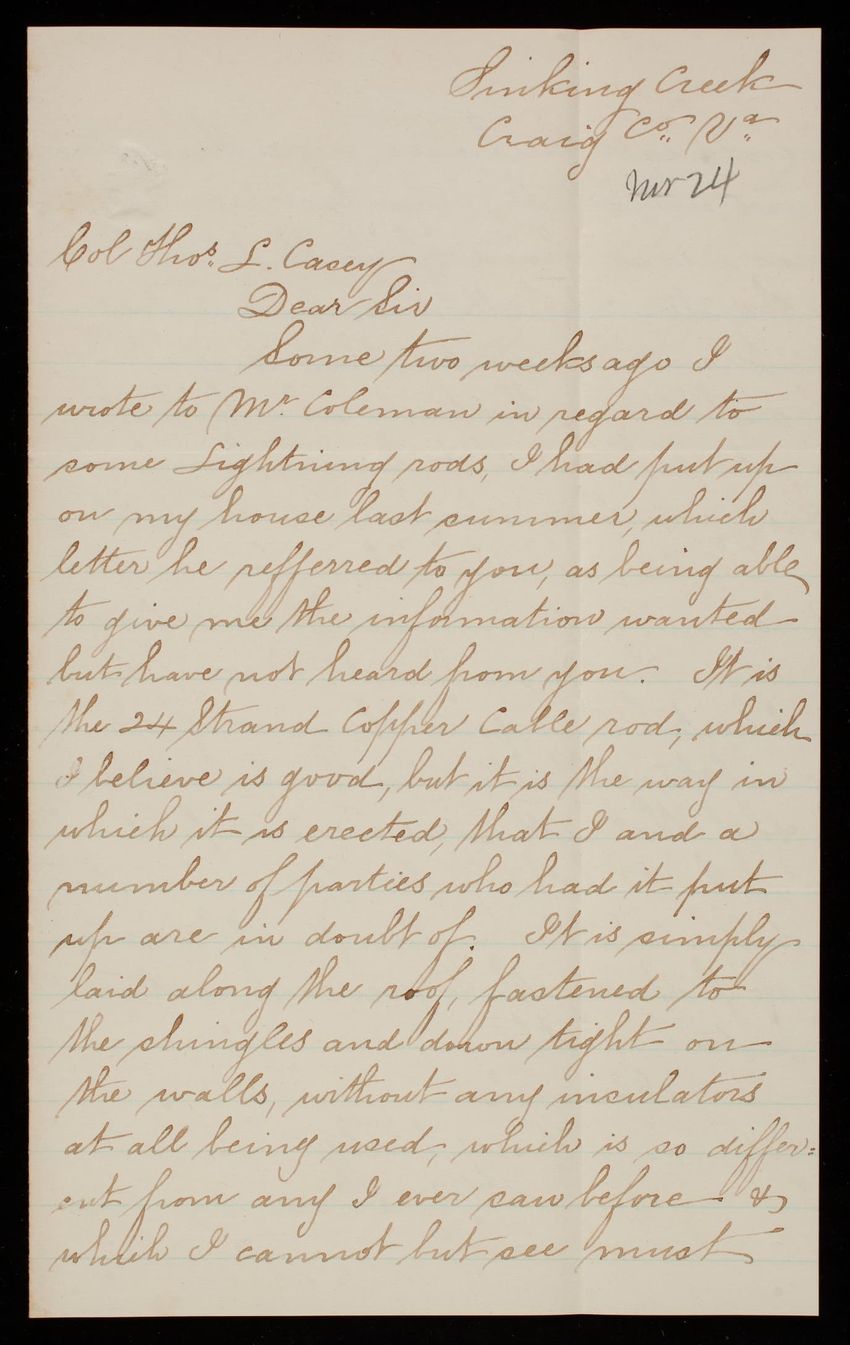 Sinking Creek
Craig Co. Va
24
Col Thos. L. Casey
Dear Sir
Some two weeks ago I
wrote to Mr. Coleman in regard to
some Lightning rods, I had put up
on my house last summer, which
letter he refferred to you, as being able
to give me the information wanted
but have not heard from you. It is
the 24 Strand Copper Cable rod, which
I believe is good, but it is the way in
which it is erected, that I and a
number of parties who had it put
up are in doubt of. It is simply
laid along the roof, fastened to
the shingles and down tight on
the walls, without any insulators
at all being used, which is so differ=
ent from any I ever saw before &
which I cannot but see must